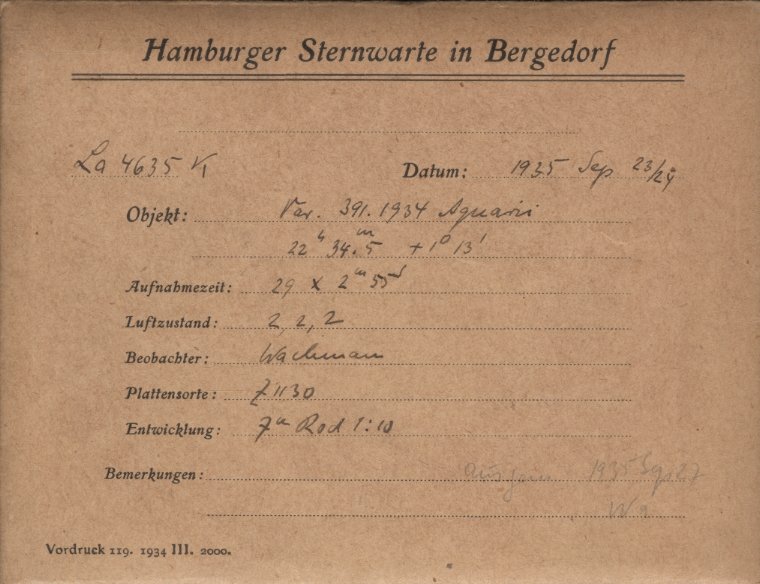 Hamburger Sternwarte in Bergedorf
La 4635 Datum: 1935 Sep 23/24
Objekt: Var. 391.1934 Aquarii
22ʰ 34.ᵐ5 +1° 13'
Aufnahmezeit: 29 x 2ᵐ 55ˢ
Luftzustand: 2, 2, 2
Beobachter: Wachmann
Plattensorte: Z 1130
Entwicklung: 7ᵐ Rod 1:10
Bemerkungen: 1935 Sep 27
Wa
Vordruck 119. 1934 III. 2000.